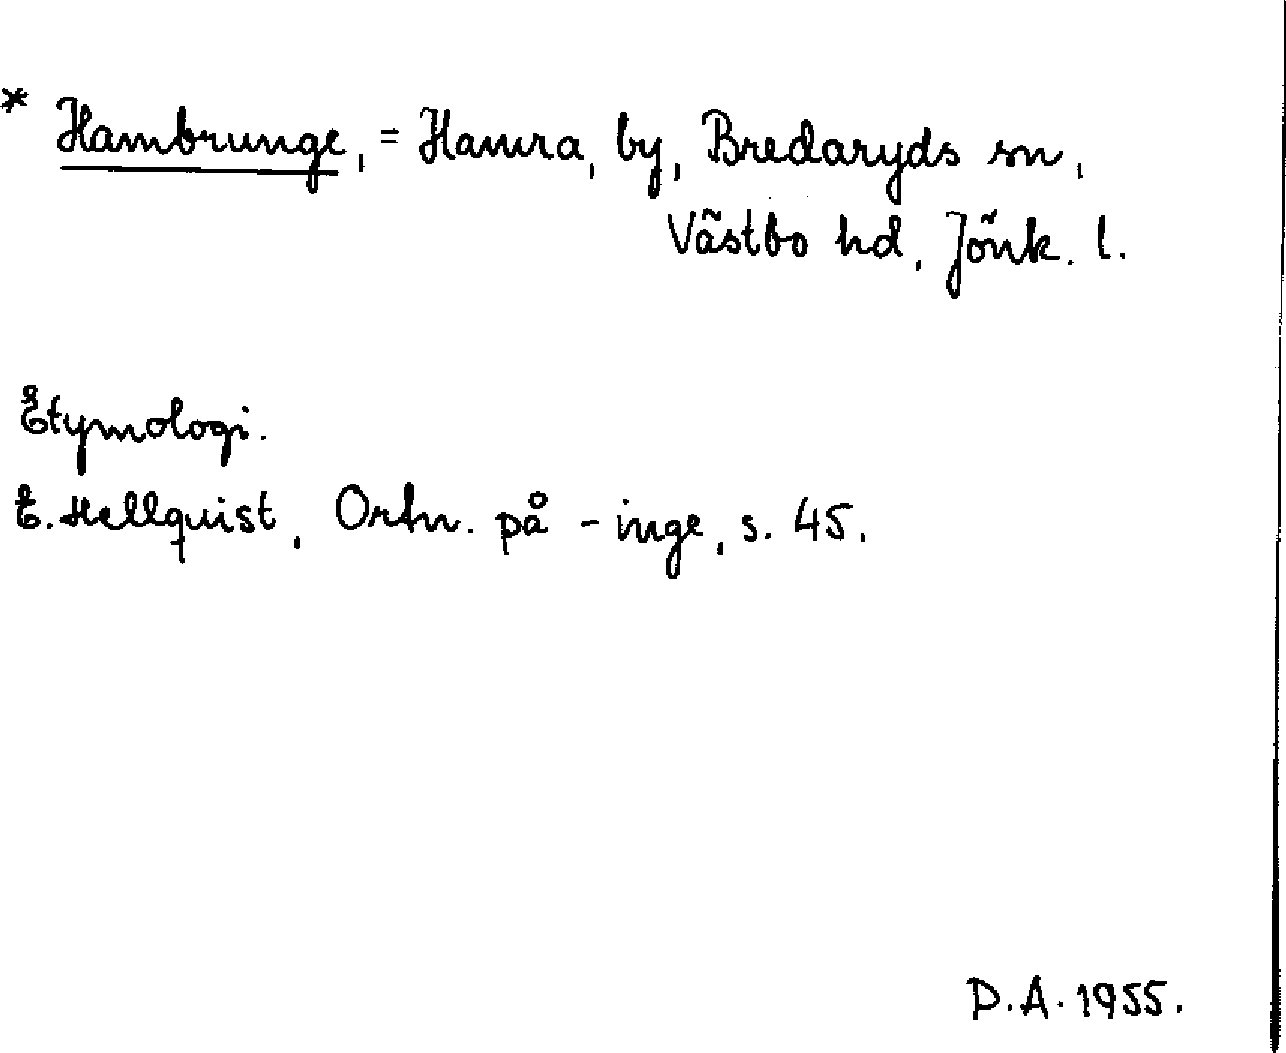 * Hambrunge, = Hamra, by, Bredaryds sn,
Västbo hd, Jönk. l.
Etymologi.
E. Hellquist, Ortn. på -inge, s. 45.
D.A. 1955.